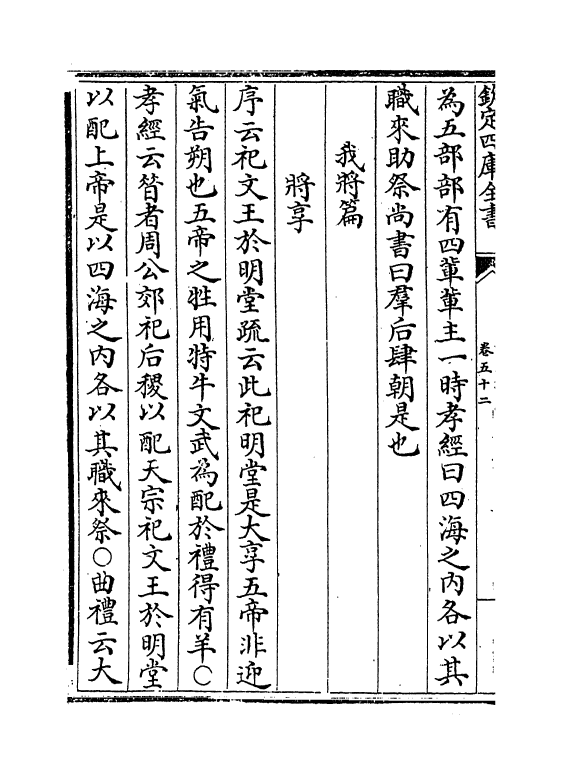 欽定四庫全書
卷五十二
為五部部有四輩輩主一時孝經曰四海之內各以其
職來助祭尚書曰羣后肆朝是也
我將篇
將享
序云祀文王於明堂疏云此祀明堂是大享五帝非迎
氣告朔也五帝之牲用特牛文武為配於禮得有羊○
孝經云昝者周公郊祀后稷以配天宗祀文王於明堂
以配上帝是以四海之內各以其職來祭○曲禮云大